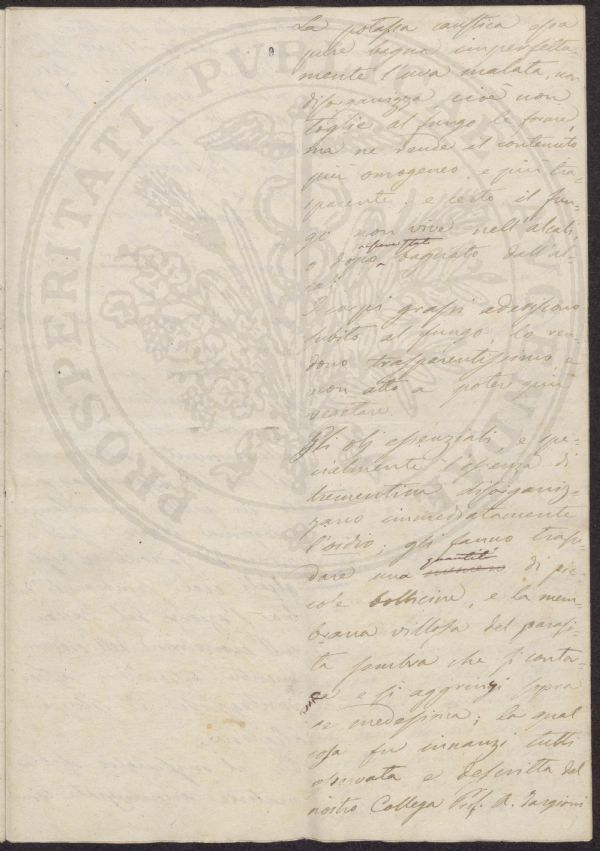 La potassa caustica essa
pure bagna imperfetta-
mente l'uva malata, non
disorganizza cioè non
toglie al fungo le forme,
ma ne rende el contenuto
più omogeneo, e più tra-
sparente. e certo il fun-
go non vive nell'alcali,
o dopo essere stato bagnato dall'al-
cali.
I corpi grassi aderiscono
subito al fungo, lo ren-
dono trasparentissimo e
non atto a poter più
vegetare.
Gli olj essenziali, e spe-
cialmente l'essenza di
trementina disorganiz-
zano immediatamente
l'oidio; gli fanno trasu-
dare una quantità di pic-
cole bollicine, e la mem-
brana villosa del parassi-
ta sembra che si contor-
ca e si aggrinzi sopra
se medesima; la qual
cosa fu innanzi tutti
osservata e descritta dal
nostro Collega Prof. A. Targioni
PROSPERITATI PUBLICAE